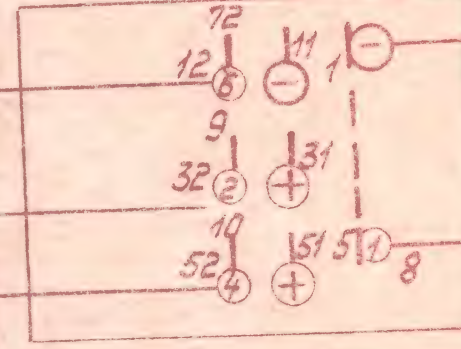 72
11
12 6 − 1 −
9
32 2 + 31
10
52 4 + 51 5 1 8